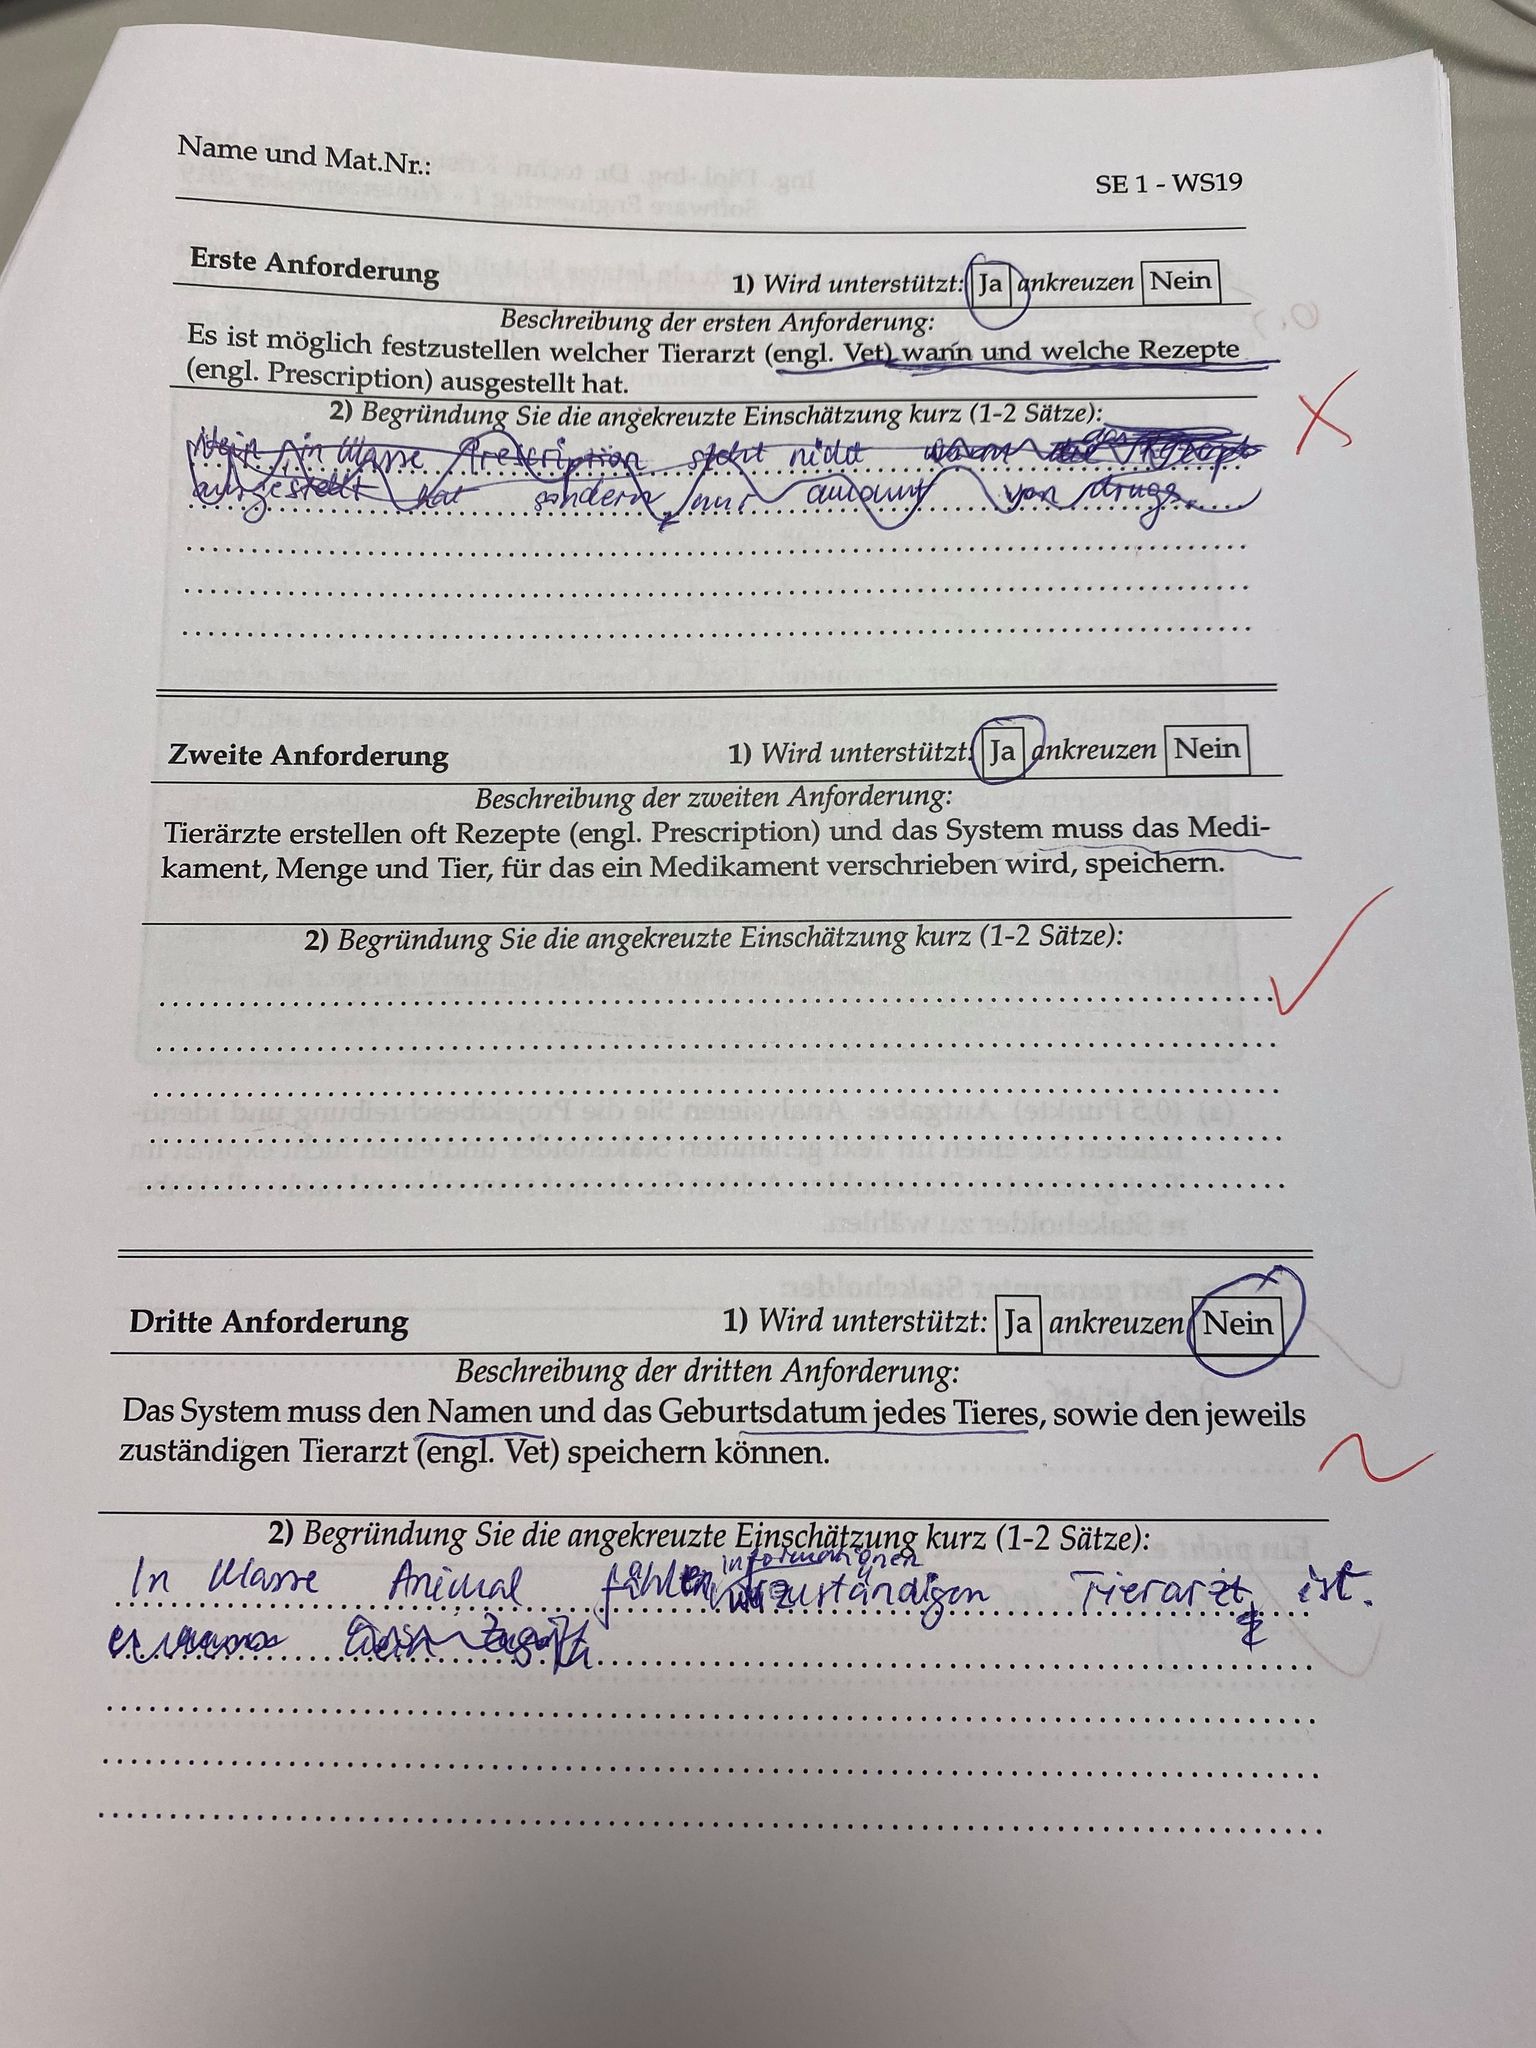 Name und Mat.Nr.:
SE 1 - WS19
Erste Anforderung
1) Wird unterstützt: Ja ankreuzen Nein
Beschreibung der ersten Anforderung:
Es ist möglich festzustellen welcher Tierarzt (engl. Vet) wann und welche Rezepte
(engl. Prescription) ausgestellt hat.
2) Begründung Sie die angekreuzte Einschätzung kurz (1-2 Sätze):
Nein, in Klasse Prescription steht nicht wann das Rezept
ausgestellt hat sondern nur amount von drugs.
Zweite Anforderung
1) Wird unterstützt: Ja ankreuzen Nein
Beschreibung der zweiten Anforderung:
Tierärzte erstellen oft Rezepte (engl. Prescription) und das System muss das Medi-
kament, Menge und Tier, für das ein Medikament verschrieben wird, speichern.
2) Begründung Sie die angekreuzte Einschätzung kurz (1-2 Sätze):
Dritte Anforderung
1) Wird unterstützt: Ja ankreuzen Nein
Beschreibung der dritten Anforderung:
Das System muss den Namen und das Geburtsdatum jedes Tieres, sowie den jeweils
zuständigen Tierarzt (engl. Vet) speichern können.
2) Begründung Sie die angekreuzte Einschätzung kurz (1-2 Sätze):
informationen
In Klasse Animal fählen zuständigen Tierarzt ist.